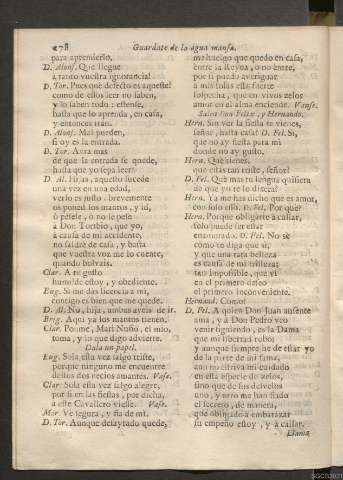 278 Guardate de la agua mansa.
para aprenderlo.
D. Alons. Que llegue
à tanto vuestra ignorancia!
D. Tor. Pues què defecto es aqueste?
como de essos leer no saben,
y lo saben todo: estense,
hasta que lo aprenda, en casa,
y entonces iràn.
D. Alons. Mal pueden,
si oy es la entrada.
D. Tor. Avrà mas
de que la entrada se quede,
hasta que yo sepa leer?
D. Al. Hijas, aquesto sucede
una vez en una edad,
verlo es justo, brevemente
os poned los mantos, y id,
ò pesele, ò no le pese
à Don Toribio, que yo,
à causa de mi accidente,
no saldrè de casa, y basta
que vuestra voz me lo cuente,
quando bolvais.
Clar. A tu gusto
humilde estoy, y obediente.
Eug. Si me das licencia à mi,
contigo es bien que me quede.
D. Al. No, hija, ambas aveis de ir.
Brig. Aqui ya los mantos tienen.
Clar. Ponme, Mari Nuño, el mio,
toma, y lo que digo advierte.
Dala un papel.
Eug. Sola esta vez salgo triste,
porque ninguno me encuentre
destos dos necios amantes. Vase.
Clar. Sola esta vez salgo alegre,
por si en las fiestas, por dicha,
à este Cavallero viesse. Vase.
Mar. Ve segura, y fia de mi.
D. Tor. Aunque desayrado quede,
mas huelgo que quedo en casa,
entre la Reyna, ò no entre,
por si puedo averiguar
à mis solas esta fuerte
sospecha, que en vivos zelos
amor en el alma enciende. Vanse.
Salen Don Felix, y Hernando.
Hern. Sin ver la fiesta te vienes,
señor, hasta casa? D. Fel. Si,
que no ay fiesta para mi
donde no ay gusto.
Hern. Què tienes,
que estàs tan triste, señor?
D. Fel. Què mas tu lengua quisiera
de que yo te lo dixera?
Hern. Ya me has dicho que es amor,
con solo esso. D. Fel. Por què?
Hern. Porque obligarte à callar,
solo puede ser estàr
enamorado. D. Fel. No sè
como te diga que si,
y que una rara belleza
es causa de mi tristeza;
tan impossible, que vi
en el primero deseo
el primero inconveniente.
Hernand. Como?
D. Fel. A quien Don Juan ausente
ama, y à Don Pedro veo
venir siguiendo, es la Dama
que mi libertad robò;
y aunque siempre he de estàr yo
de la parte de mi fama,
aun no estriva mi cuidado
en esta especie de zelos,
sino que de sus desvelos
uno, y otro me han fiado
el secreto, de manera,
que obligado à embarazar
su empeño estoy, y à callar.
Llama